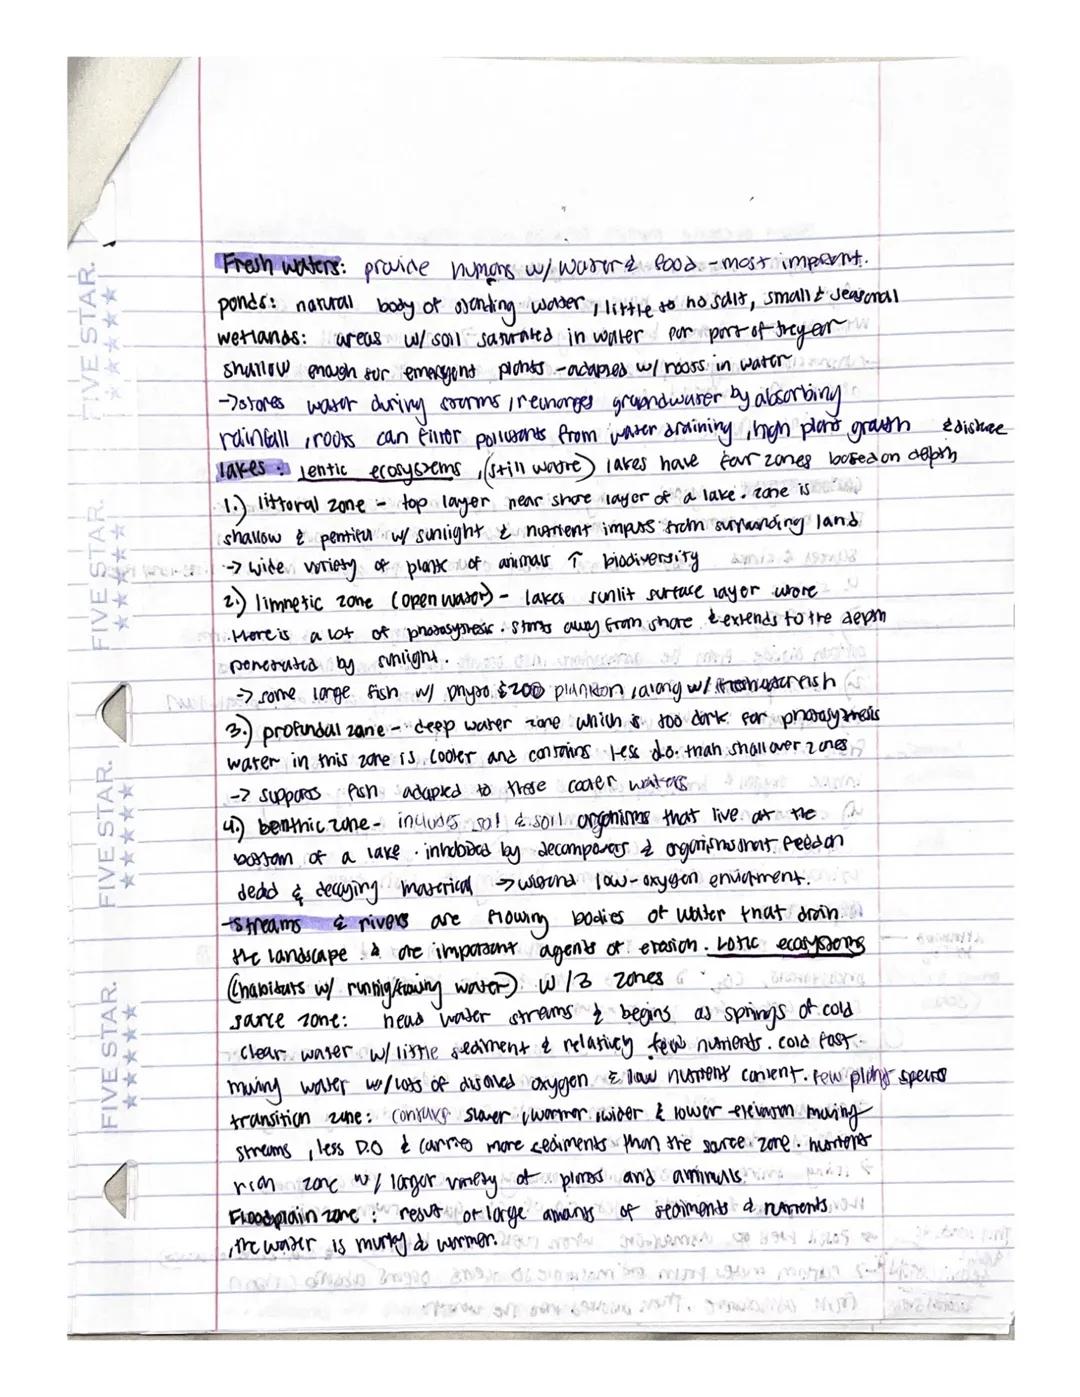 Fresh waters: provide humans w/ water & food - most important.
ponds: natural body of standing water, little to no salt, small & seasonal
wetlands: areas w/ soil saturated in water for part of the year
shallow enough for emergent plants - adapted w/ roots in water
-> stores water during storms, recharges groundwater by absorbing
rainfall, roots can filter pollutants from water draining, high plant growth & disease
lakes: lentic ecosystems, (still water) lakes have four zones based on depth
1.) littoral zone - top layer near shore layer of a lake. zone is
shallow & plentiful w/ sunlight & nutrient inputs from surrounding land
-> wide variety of plants of animals ↑ biodiversity
2.) limnetic zone (open water) - lakes sunlit surface layer were
there is a lot of photosynthesis. starts away from shore & extends to the depth
penetrated by sunlight.
-> some large fish w/ phyto & zoo plankton, along w/ freshwater fish
3.) profundal zone - deep water zone which is too dark for photosynthesis
water in this zone is cooler and contains less d.o. than shallower zones
-> supports fish adapted to these cooler waters
4.) benthic zone - includes soil & soil organisms that live at the
bottom of a lake. inhabited by decomposers & organisms that feed on
dead & decaying material -> low-oxygen enviornment.
-streams & rivers are flowing bodies of water that drain
the landscape & are important agents of erosion. Lotic ecosystems
(habitats w/ running/flowing water) w/3 zones
source zone: head water streams & begins as springs of cold
clear water w/ little sediment & relatively few nutrients. cold fast-
moving water w/ lots of disolved oxygen & low nutrient content. few plant species
transition zone: contains slower, warmer, wider & lower-elevation moving
streams, less D.O & carries more sediments than the source zone. nutrient
rich zone w/ larger variety of plants and animals
Floodplain zone: result of large amounts of sediments & nutrients
, the water is murky & warmer.
FIVE STAR.
FIVE STAR.
FIVE STAR.
FIVE STAR.